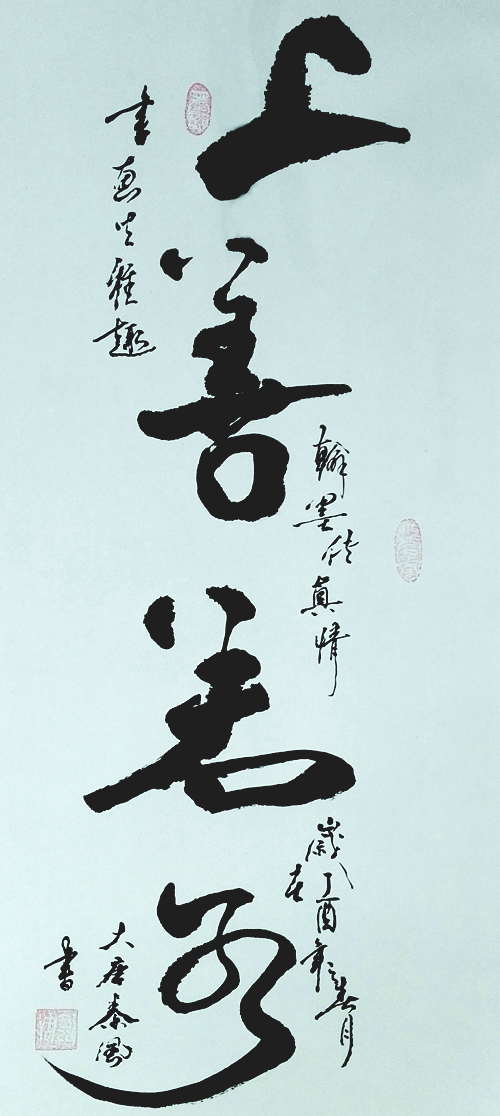 上善若水
翰墨傳真情
書畫生雅趣
歲在丁酉年之春月
大唐秦風
書